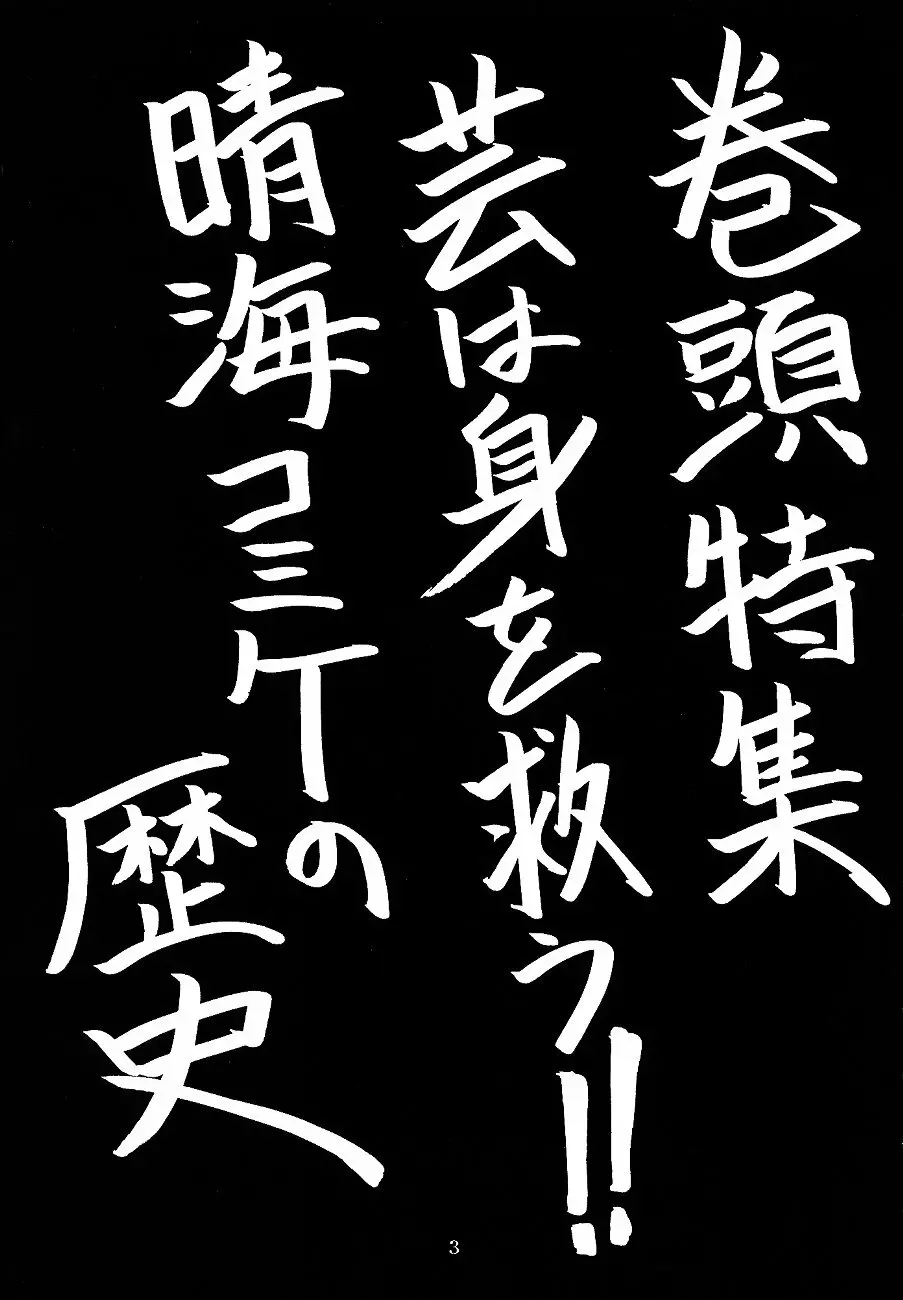 巻頭特集
芸は身を救う!!
晴海コミケの歴史
3